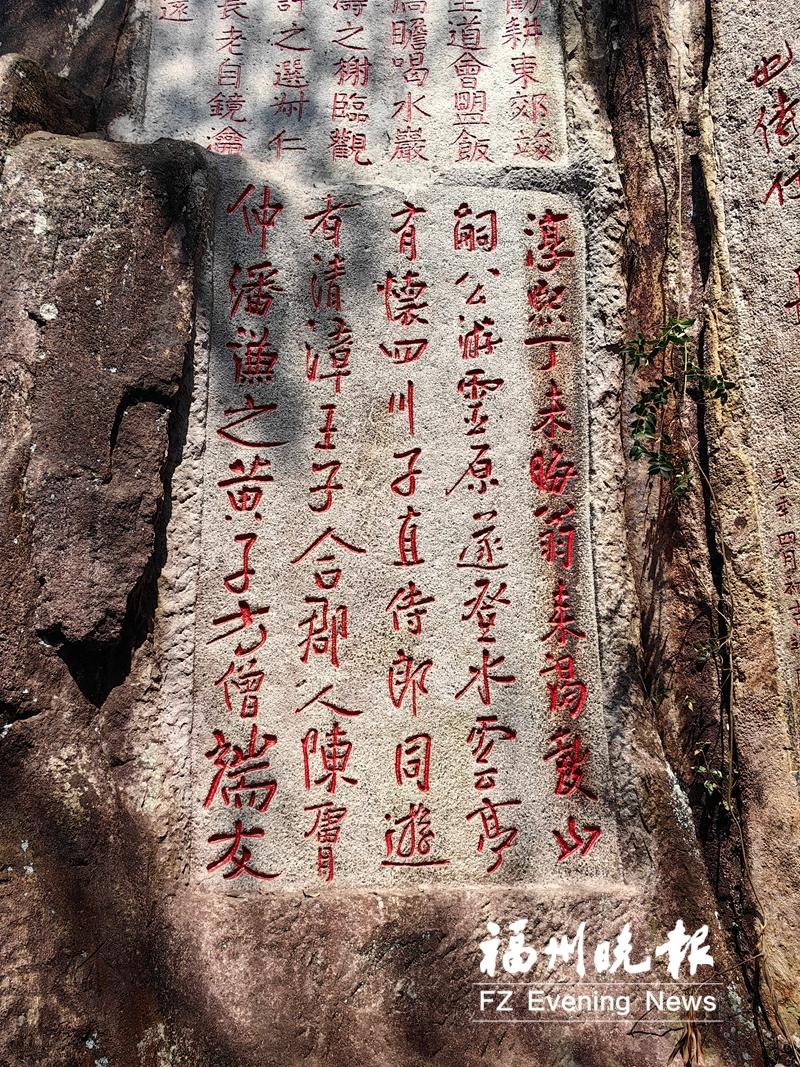 耕東郊竣
道會盟飯
瞻喝水巖
之榭臨觀
之選妍仁
老自鏡瀹
淳熙丁未晦翁来謁鼓山
嗣公游靈原遂登水雲亭
有懷四川子直侍郎同遊
者清漳王子合郡人陳膚
仲潘謙之黄子方僧端友
福州晚报
FZ Evening News